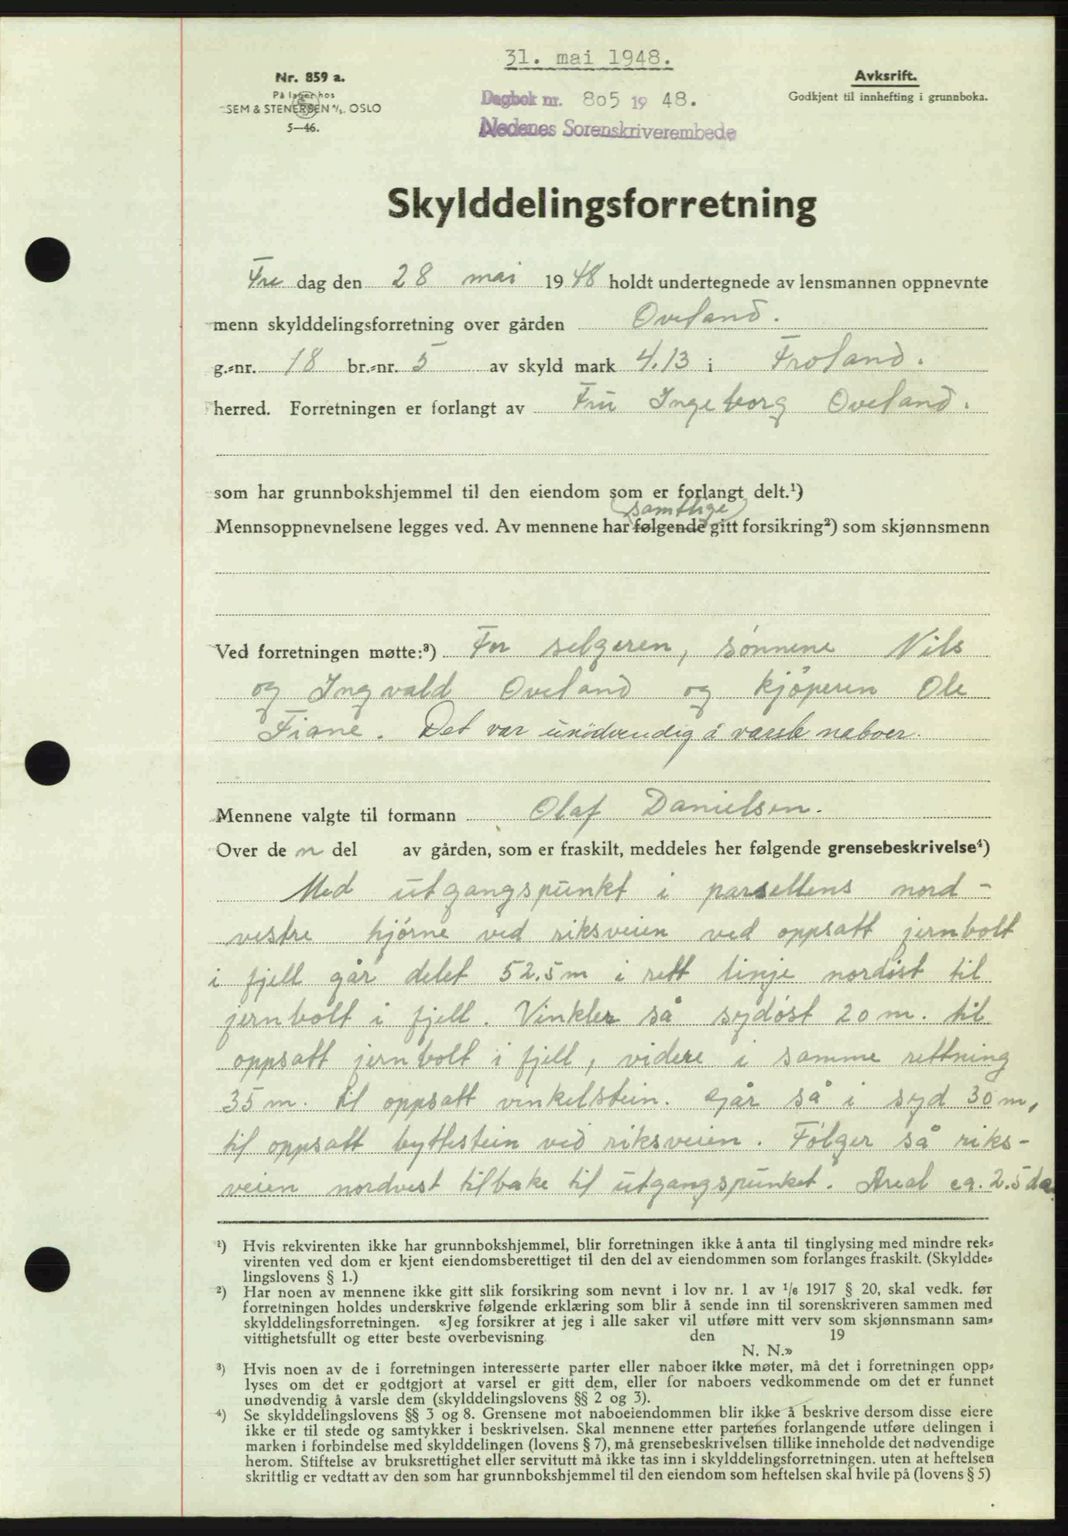 31. mai 1948.
Nr. 859 a.
På lager hos
SEM & STENERSEN A/S. OSLO
5—46.
Avksrift.
Godkjent til innhefting i grunnboka.
Dagbok nr. 805 19 48.
Nedenes Sorenskriverembede
Skylddelingsforretning
Fre dag den 28 mai 1948 holdt undertegnede av lensmannen oppnevnte
menn skylddelingsforretning over gården Oveland.
g.-nr. 18 br.-nr. 5 av skyld mark 4.13 i Froland.
herred. Forretningen er forlangt av Fru Ingeborg Oveland.
som har grunnbokshjemmel til den eiendom som er forlangt delt.¹)
samtlige
Mennsoppnevnelsene legges ved. Av mennene har følgende gitt forsikring²) som skjønnsmenn
Ved forretningen møtte:³) For selgeren, sønnene Nils
og Ingvald Oveland og kjøperen Ole
Fiane. Det var unødvendig å varsle naboer.
Mennene valgte til formann Olaf Danielsen.
Over de n del av gården, som er fraskilt, meddeles her følgende grensebeskrivelse⁴)
Med utgangspunkt i parsellens nord-
vestre hjørne ved riksveien ved oppsatt jernbolt
i fjell går delet 52.5 m i rett linje nordøst til
jernbolt i fjell. Vinkler så sydøst 20 m. til
oppsatt jernbolt i fjell, videre i samme rettning
35 m. til oppsatt vinkelstein. Går så i syd 30 m,
til oppsatt byttestein ved riksveien. Følger så riks-
veien nordvest tilbake til utgangspunktet. Areal ca. 2.5 da
¹) Hvis rekvirenten ikke har grunnbokshjemmel, blir forretningen ikke å anta til tinglysing med mindre rek-
virenten ved dom er kjent eiendomsberettiget til den del av eiendommen som forlanges fraskilt. (Skyldde-
lingslovens § 1.)
²) Har noen av mennene ikke gitt slik forsikring som nevnt i lov nr. 1 av 1/6 1917 § 20, skal vedk. før
forretningen holdes underskrive følgende erklæring som blir å sende inn til sorenskriveren sammen med
skylddelingsforretningen. «Jeg forsikrer at jeg i alle saker vil utføre mitt verv som skjønnsmann sam-
vittighetsfullt og etter beste overbevisning den 19
N. N.»
³) Hvis noen av de i forretningen interesserte parter eller naboer ikke møter, må det i forretningen opp-
lyses om det er godtgjort at varsel er gitt dem, eller for naboers vedkommende om det er funnet
unødvendig å varsle dem (skylddelingslovens §§ 2 og 3).
⁴) Se skylddelingslovens §§ 3 og 8. Grensene mot naboeiendommen blir ikke å beskrive dersom disse eiere
ikke er til stede og samtykker i beskrivelsen. Skal mennene etter partenes forlangende utføre delingen i
marken i forbindelse med skylddelingen (lovens § 7), må grensebeskrivelsen tillike inneholde det nødvendige
herom. Stiftelse av bruksrettighet eller servitutt må ikke tas inn i skylddelingsforretningen. uten at heftelsen
skriftlig er vedtatt av den som har grunnbokshjemmel til den eiendom som heftelsen skal hvile på (lovens § 5)